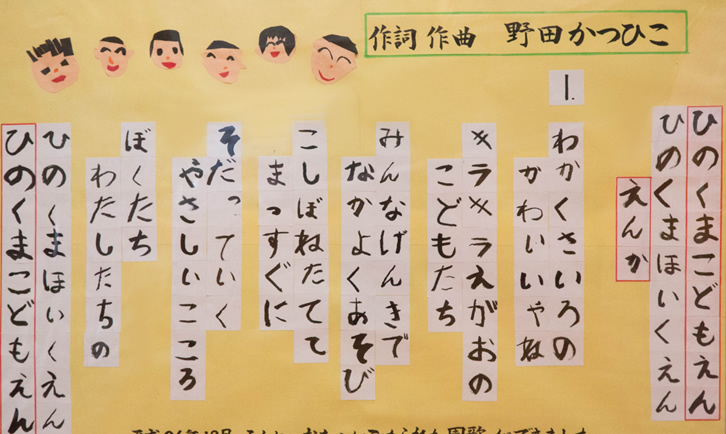 作詞 作曲 野田かつひこ
ひのくまこどもえん
ひのくまほいくえん
えんか
1.
わかくさいろの
かわいいやね
キラキラえがおの
こどもたち
みんなげんきで
なかよくあそび
こしぼねたてて
まっすぐに
そだっていく
やさしいこころ
ぼくたち
わたしたちの
ひのくまほいくえん
ひのくまこどもえん